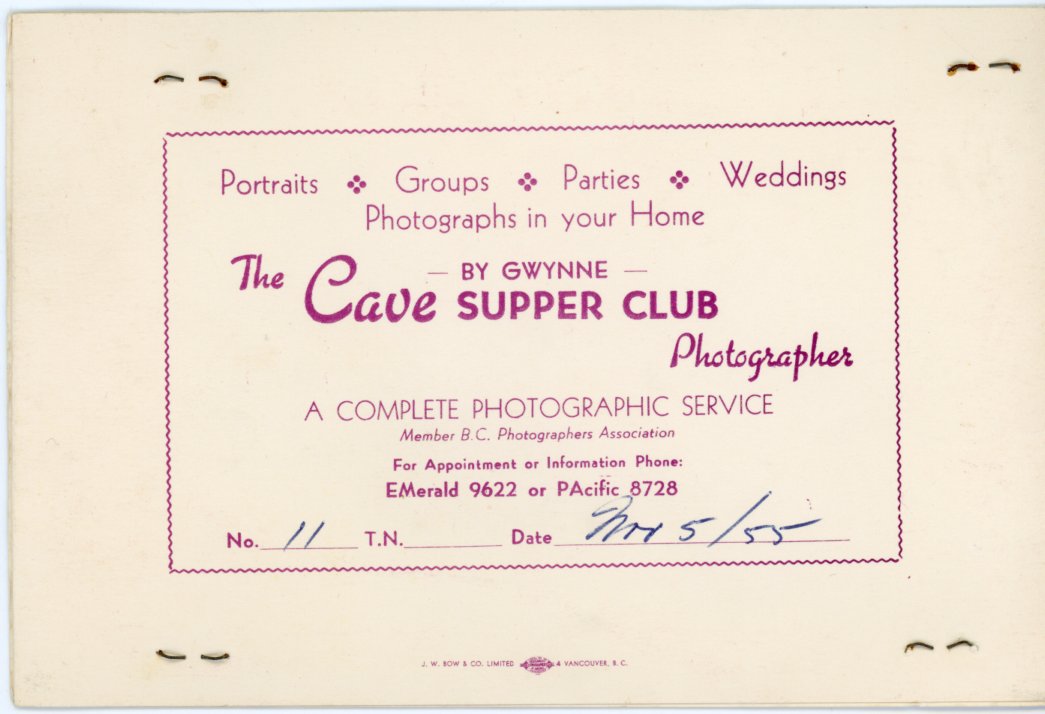 Portraits Groups Parties Weddings
Photographs in your Home
— BY GWYNNE —
The Cave SUPPER CLUB
Photographer
A COMPLETE PHOTOGRAPHIC SERVICE
Member B.C. Photographers Association
For Appointment or Information Phone:
EMerald 9622 or PAcific 8728
No. 11 T.N. Date Nov 5/55
J. W. BOW & CO. LIMITED 4 VANCOUVER, B. C.